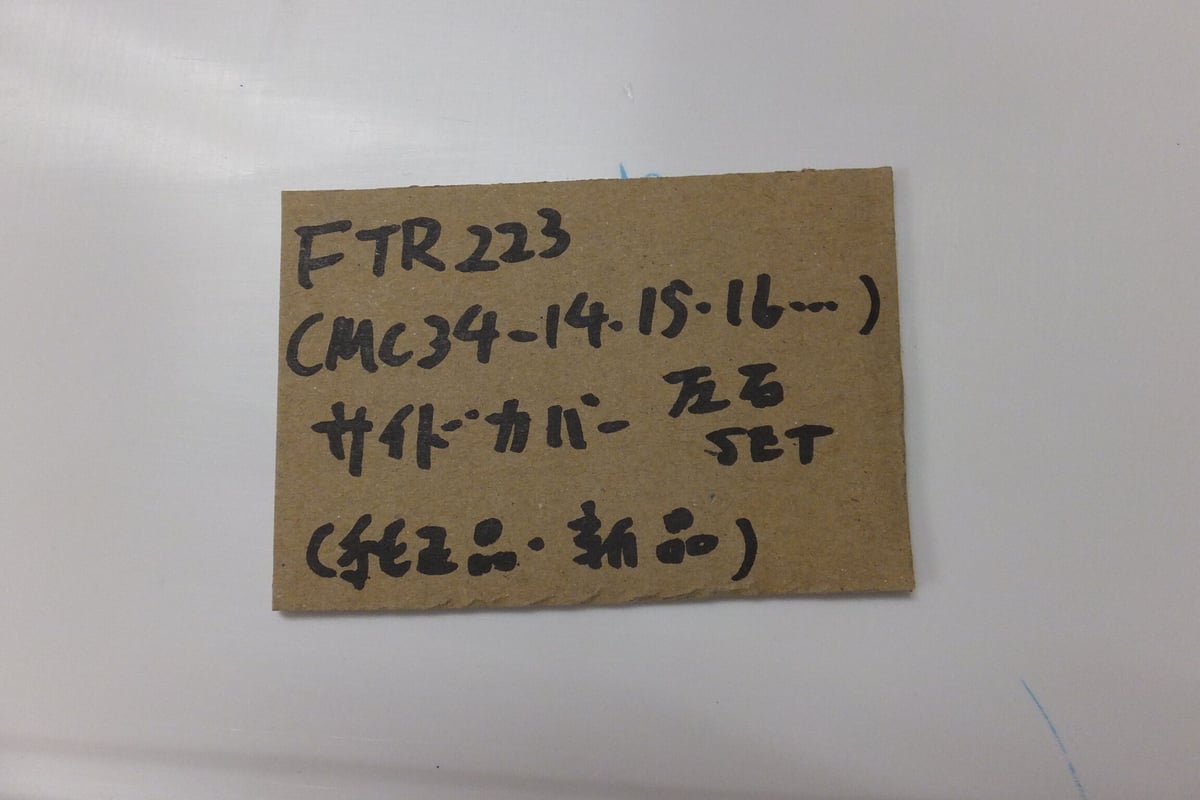 FTR223
(MC34-14.15.16…)
サイドカバー 左右
SET
(純正品・新品)